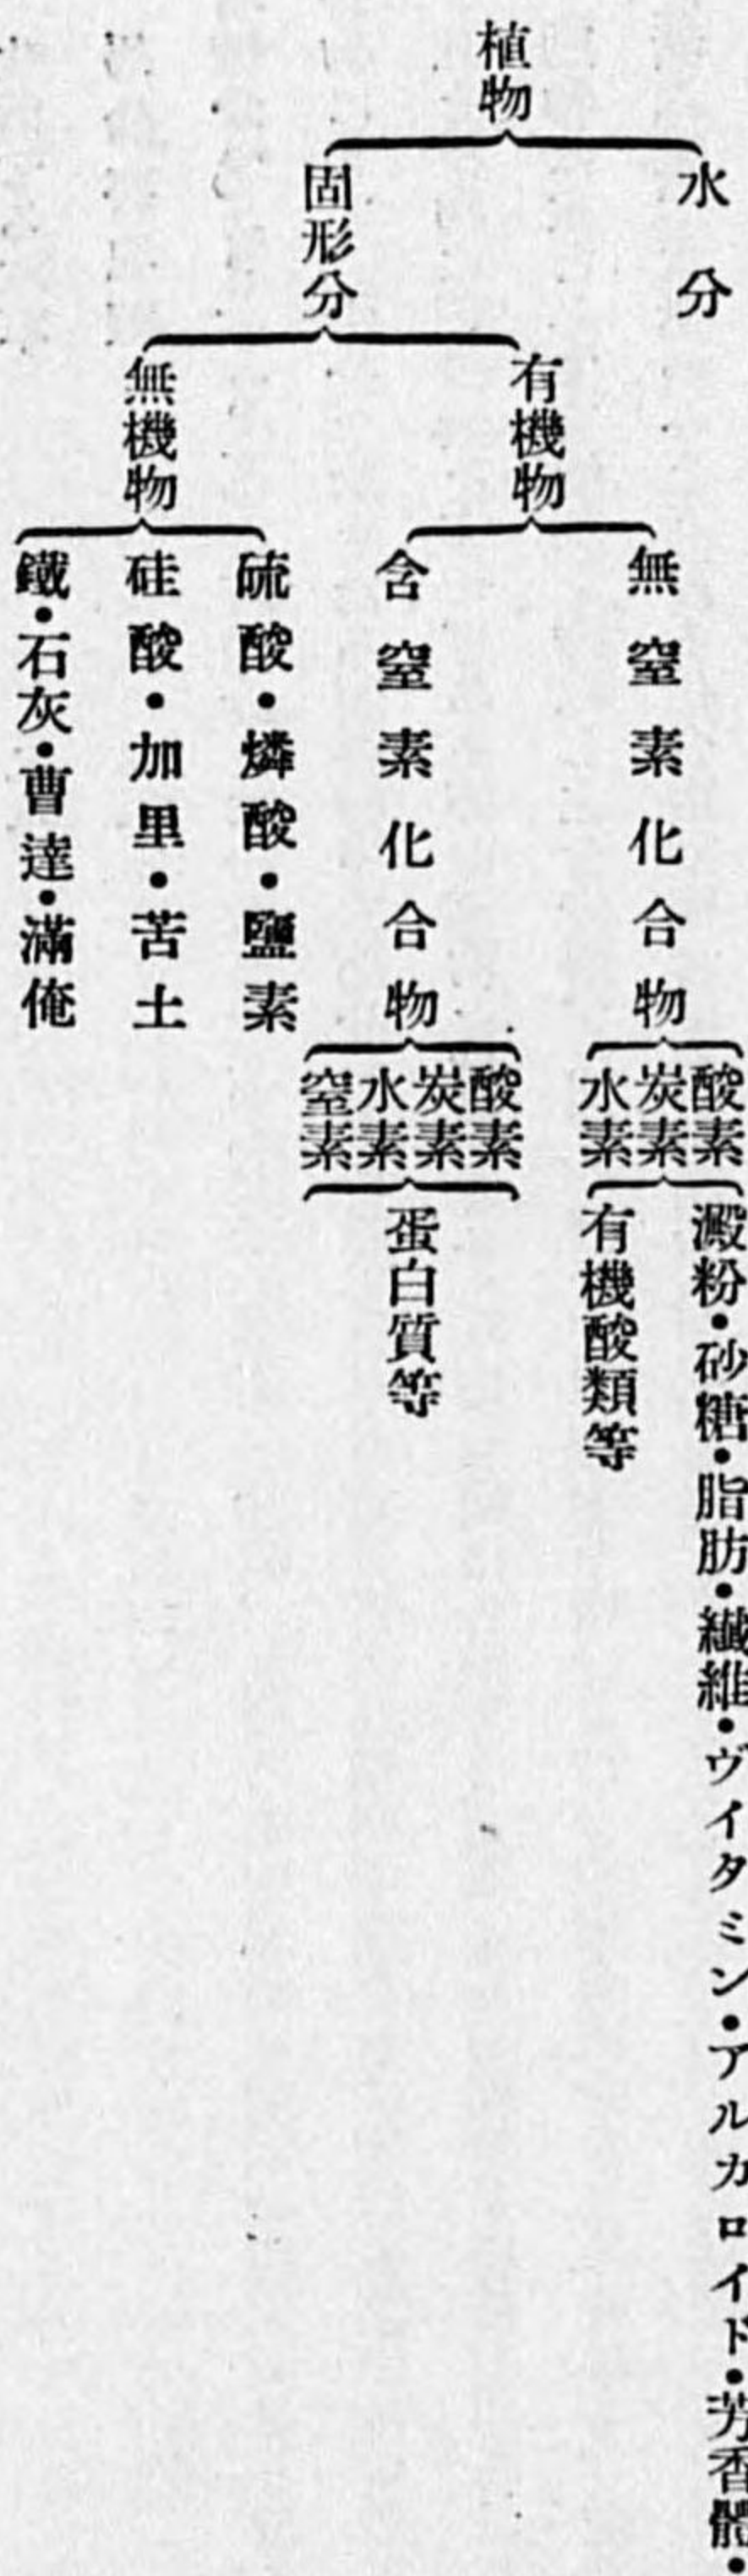 植物
水分
固形分
有機物
無機物
無窒素化合物
酸素
炭素
水素
澱粉・砂糖・脂肪・纎維・ヴイタミン・アルカロイド・芳香體・
有機酸類等
含窒素化合物
酸素
炭素
水素
窒素
蛋白質等
硫酸・燐酸・鹽素
硅酸・加里・苦土
鐵・石灰・曹達・滿俺